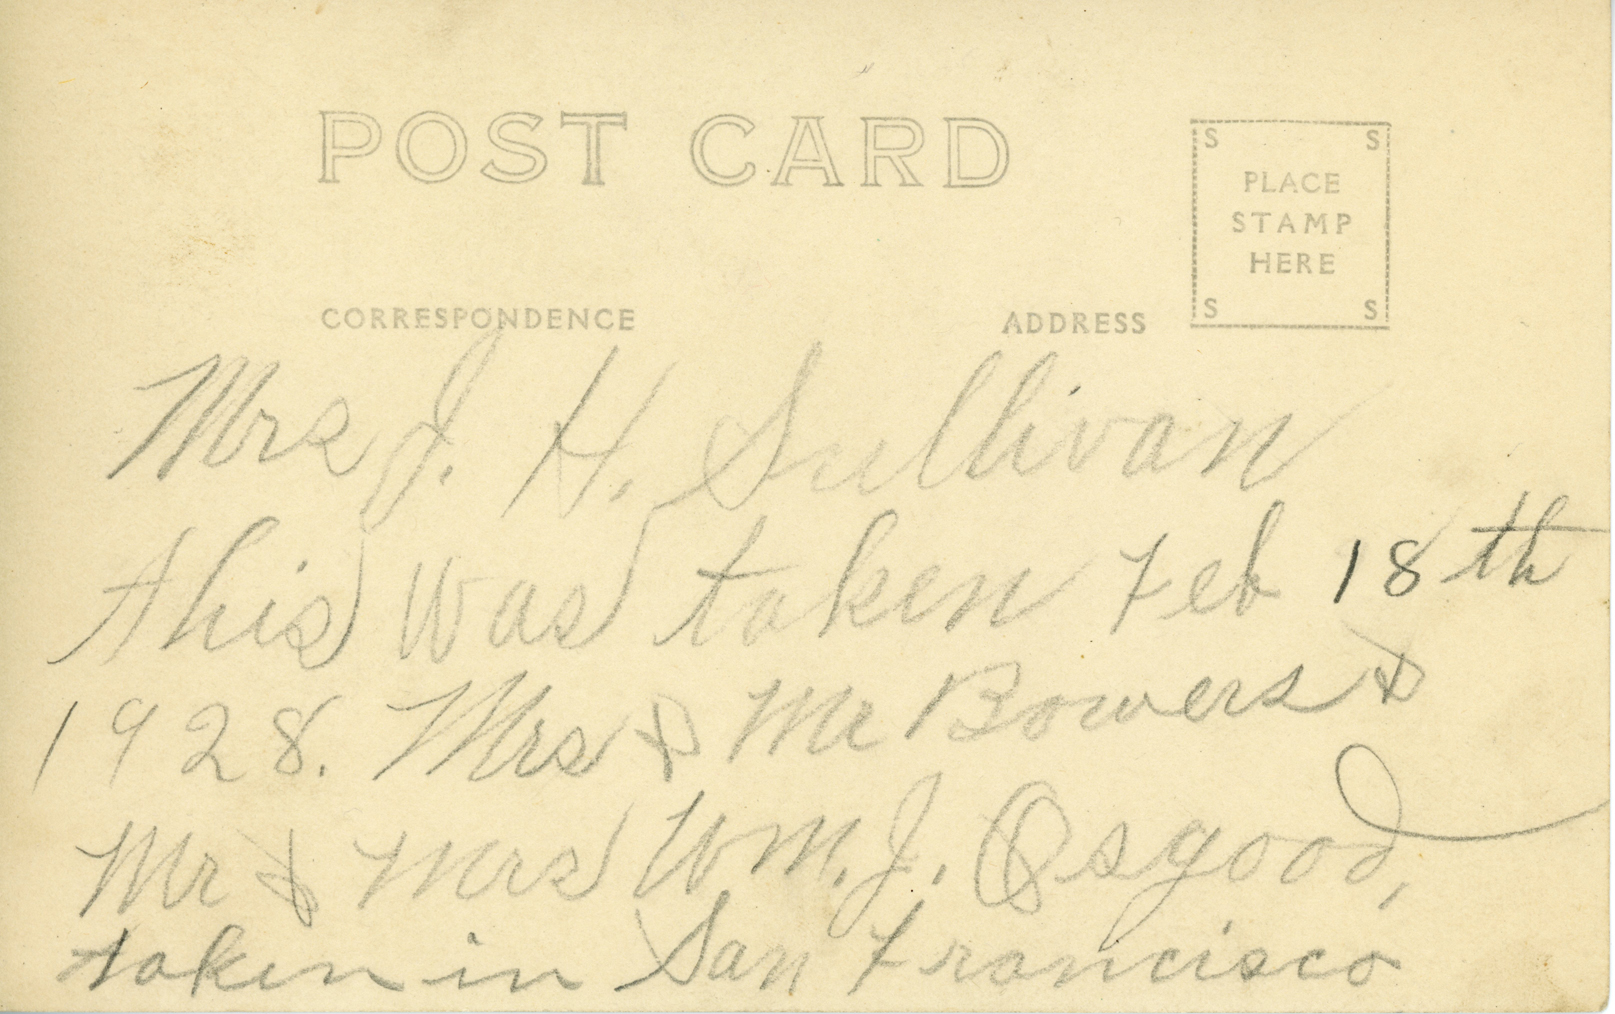 POST CARD
S S
PLACE
STAMP
HERE
S S
CORRESPONDENCE ADDRESS
Mrs J. H. Sullivan
this was taken Feb 18th
1928. Mrs & Mr Bowers &
Mr & Mrs Wm. J. Osgood,
taken in San Francisco